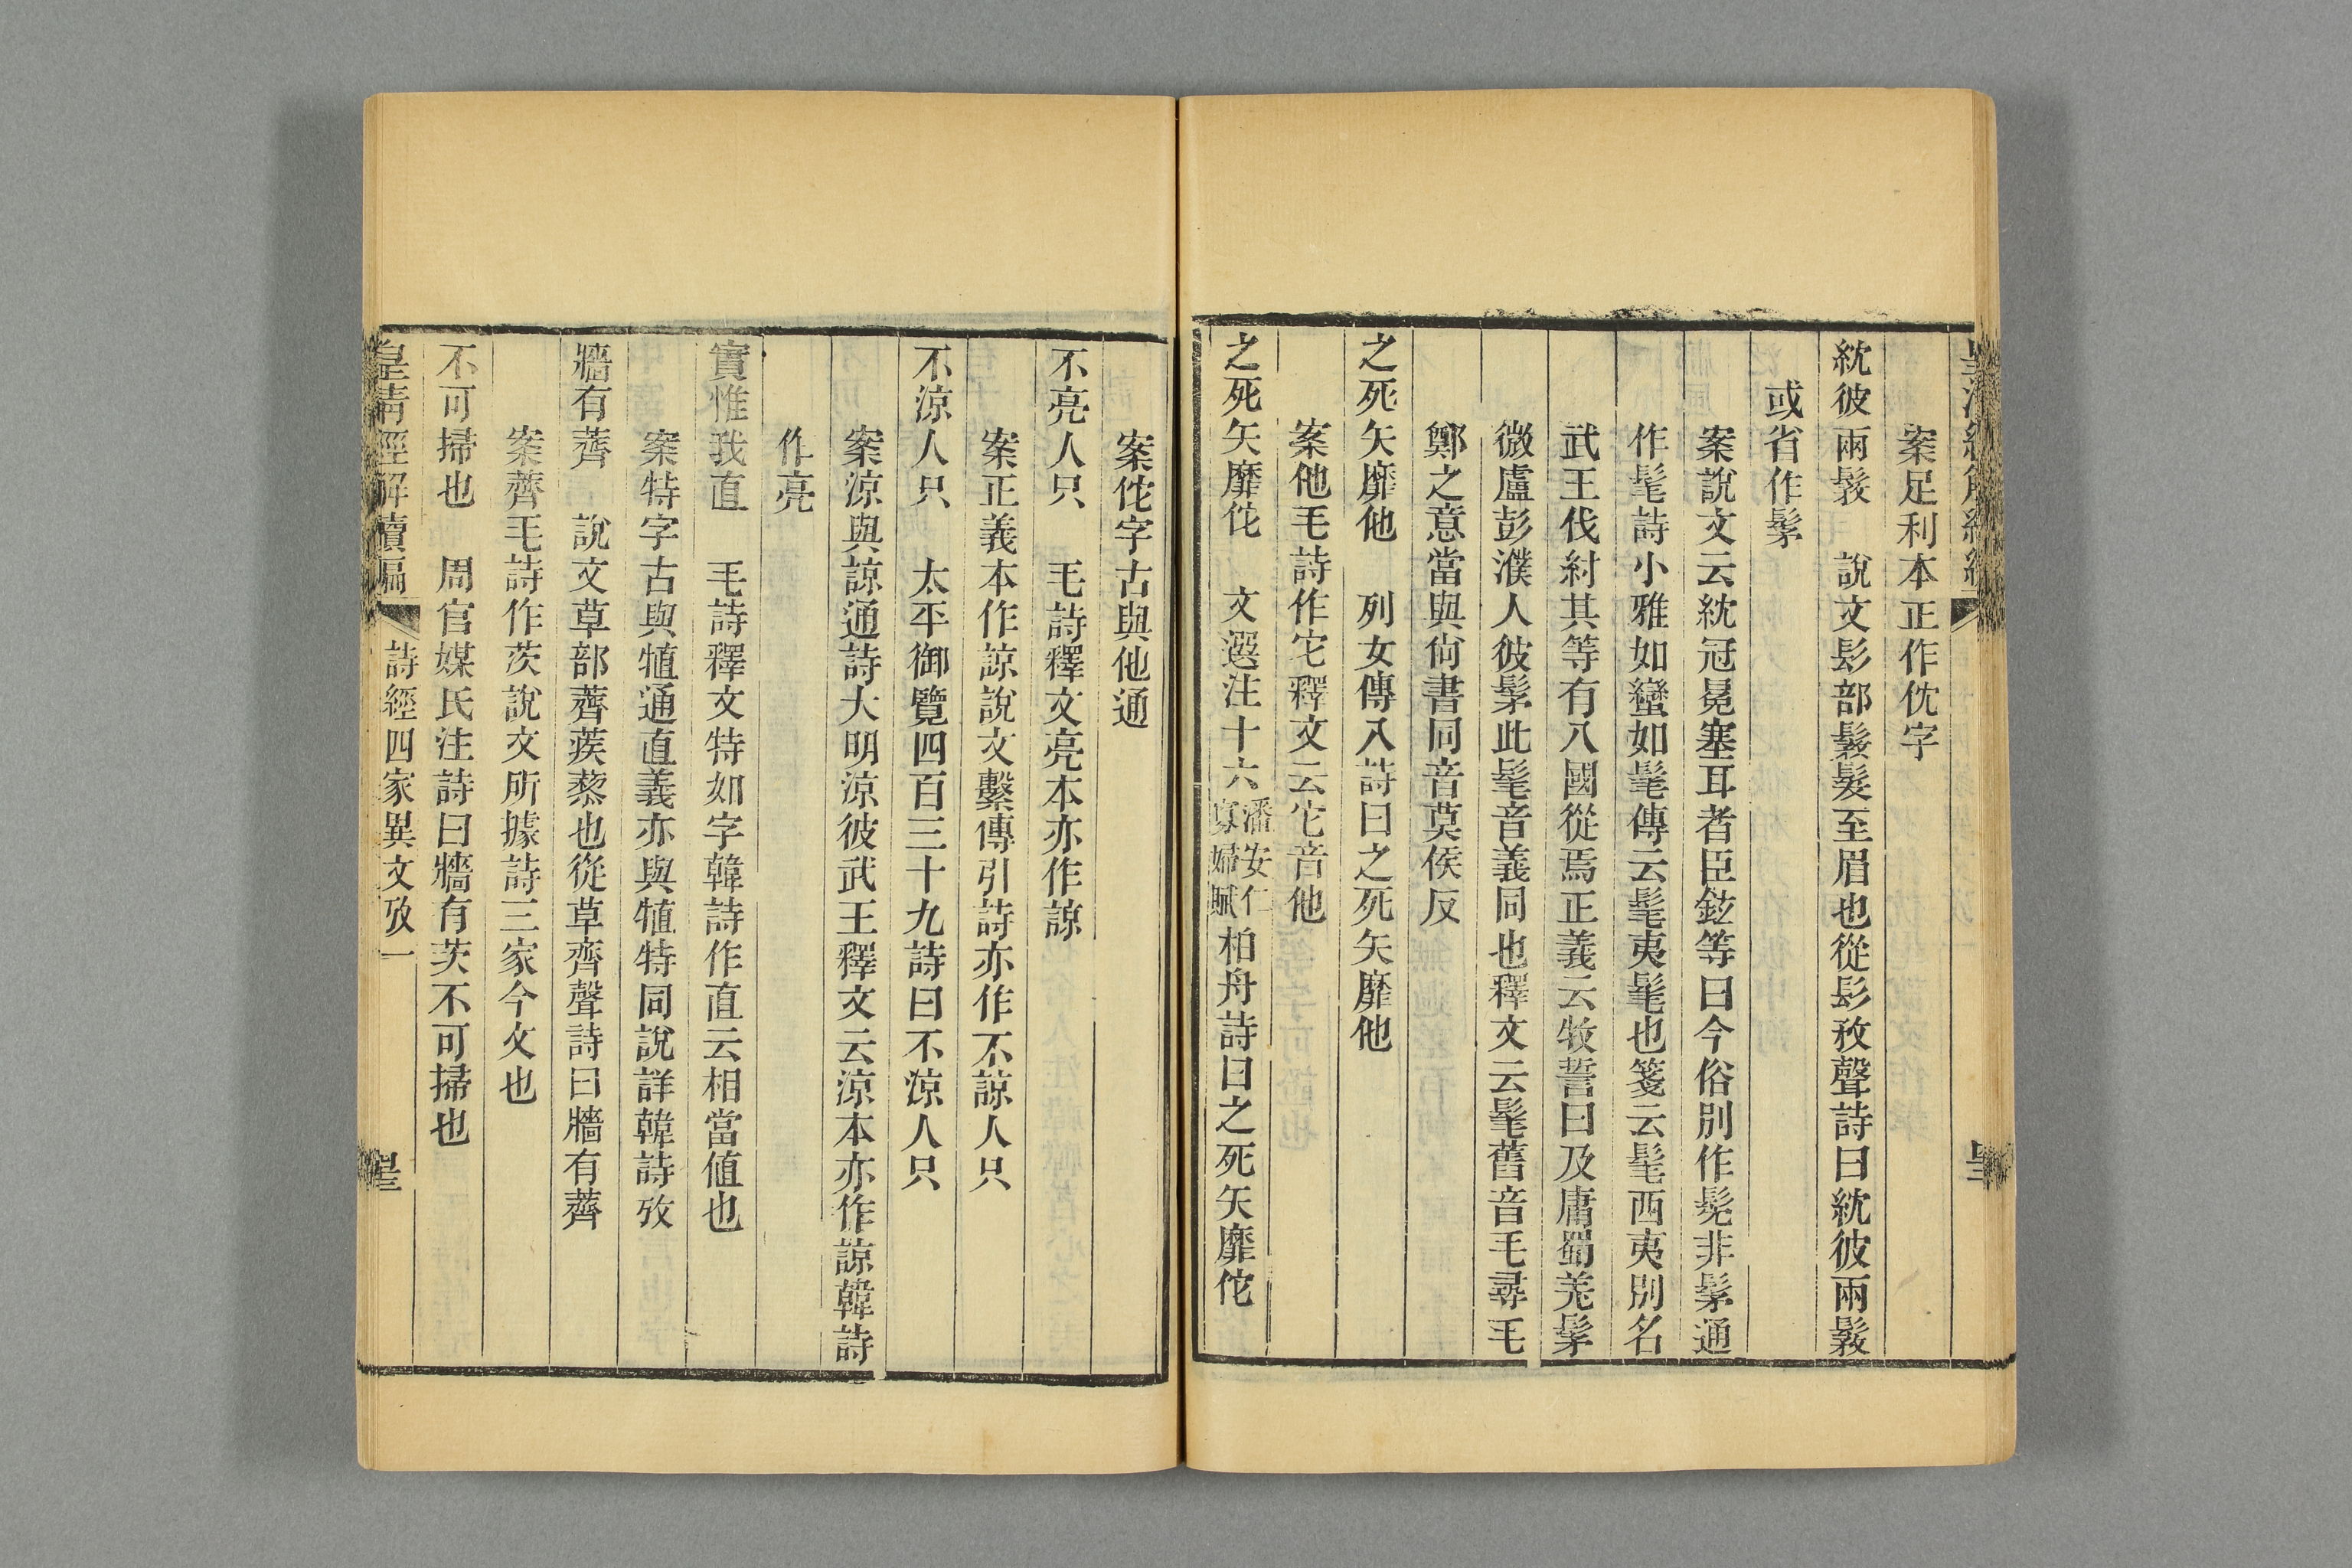 案足利本正作忱字
紞彼兩髮 說文髟部鬏髮至眉也從髟敄聲詩曰紞彼兩鬏
或省作髳
案說文云紞冠冕塞耳者臣鉉等曰今俗別作髧非髳通
作髦詩小雅如蠻如髦傳云髦夷髦也箋云髦西夷別名
武王伐紂其等有八國從焉正義云牧誓曰及庸蜀羌髳
微盧彭濮人彼髳此髦音義同也釋文云髦舊音毛尋毛
鄭之意當與尙書同音莫侯反
之死矢靡他 列女傳八詩曰之死矢靡他
案他毛詩作它釋文云它音他
之死矢靡佗 文選注十六潘安仁寡婦賦柏舟詩曰之死矢靡佗
案佗字古與他通
不亮人只 毛詩釋文亮本亦作諒
案正義本作諒說文繫傳引詩亦作不諒人只
不涼人只 太平御覽四百三十九詩曰不涼人只
案涼與諒通詩大明涼彼武王釋文云涼本亦作諒韓詩
作亮
實惟我直 毛詩釋文特如字韓詩作直云相當値也
案特字古與犆通直義亦與犆特同說詳韓詩攷
牆有薺 說文草部薺蒺蔾也從草齊聲詩曰牆有薺
案薺毛詩作茨說文所據詩三家今文也
不可掃也 周官媒氏注詩曰牆有茨不可掃也
皇清經解續編 詩經四家異文攷一